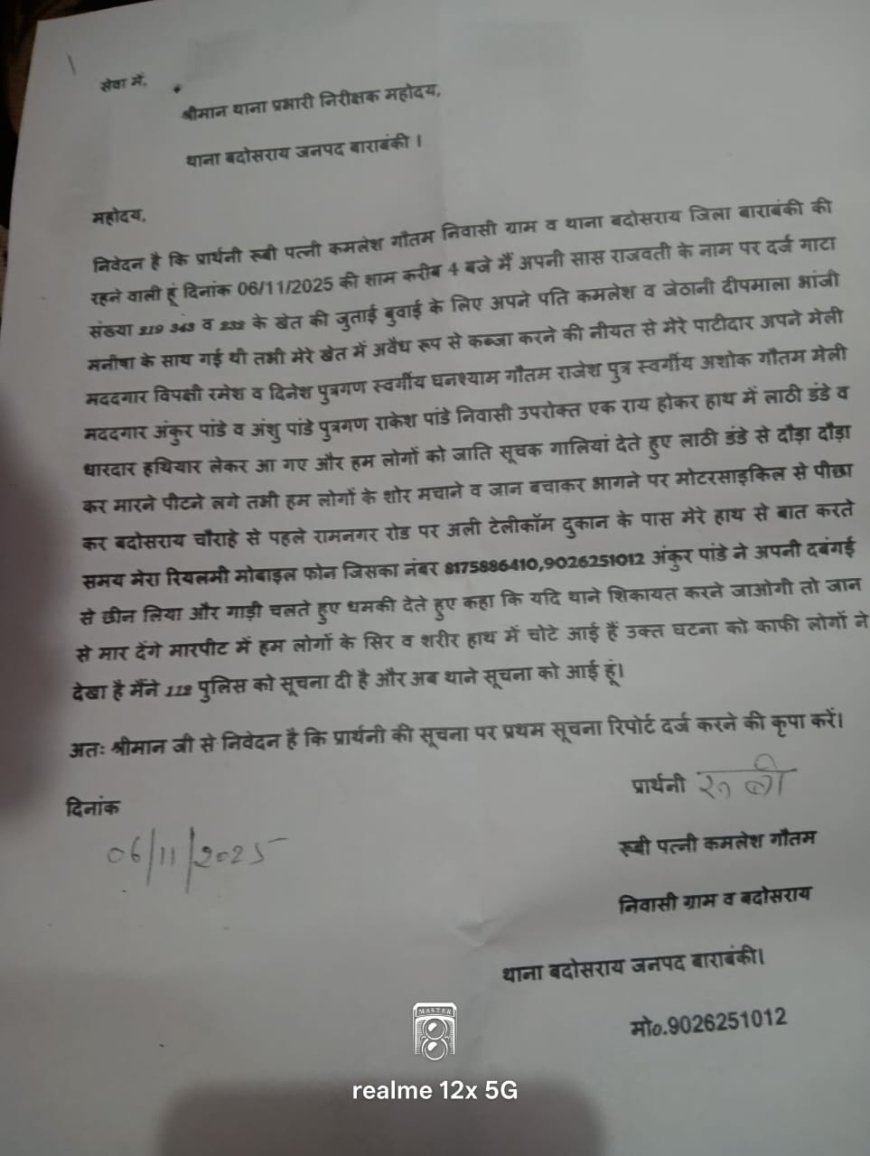 सेवा में,
श्रीमान थाना प्रभारी निरीक्षक महोदय,
थाना बदोसराय जनपद बाराबंकी ।
महोदय,
निवेदन है कि प्रार्थनी रूबी पत्नी कमलेश गौतम निवासी ग्राम व थाना बदोसराय जिला बाराबंकी की
रहने वाली हूं दिनांक 06/11/2025 की शाम करीब 4 बजे मैं अपनी सास राजवती के नाम पर दर्ज गाटा
संख्या 219 343 व 232 के खेत की जुताई बुवाई के लिए अपने पति कमलेश व जेठानी दीपमाला भांजी
मनीषा के साथ गई थी तभी मेरे खेत में अवैध रूप से कब्जा करने की नीयत से मेरे पाटीदार अपने मेली
मददगार विपक्षी रमेश व दिनेश पुत्रगण स्वर्गीय घनश्याम गौतम राजेश पुत्र स्वर्गीय अशोक गौतम मेली
मददगार अंकुर पांडे व अंशु पांडे पुत्रगण राकेश पांडे निवासी उपरोक्त एक राय होकर हाथ में लाठी डंडे व
धारदार हथियार लेकर आ गए और हम लोगों को जाति सूचक गालियां देते हुए लाठी डंडे से दौड़ा दौड़ा
कर मारने पीटने लगे तभी हम लोगों के शोर मचाने व जान बचाकर भागने पर मोटरसाइकिल से पीछा
कर बदोसराय चौराहे से पहले रामनगर रोड पर अली टेलीकॉम दुकान के पास मेरे हाथ से बात करते
समय मेरा रियलमी मोबाइल फोन जिसका नंबर 8175886410,9026251012 अंकुर पांडे ने अपनी दबंगई
से छीन लिया और गाड़ी चलते हुए धमकी देते हुए कहा कि यदि थाने शिकायत करने जाओगी तो जान
से मार देंगे मारपीट में हम लोगों के सिर व शरीर हाथ में चोटे आई हैं उक्त घटना को काफी लोगों ने
देखा है मैंने 112 पुलिस को सूचना दी है और अब थाने सूचना को आई हूं।
अतः श्रीमान जी से निवेदन है कि प्रार्थनी की सूचना पर प्रथम सूचना रिपोर्ट दर्ज करने की कृपा करें।
प्रार्थनी रूबी
दिनांक
06/11/2025
रूबी पत्नी कमलेश गौतम
निवासी ग्राम व बदोसराय
थाना बदोसराय जनपद बाराबंकी।
मो०.9026251012
MASTER
realme 12x 5G